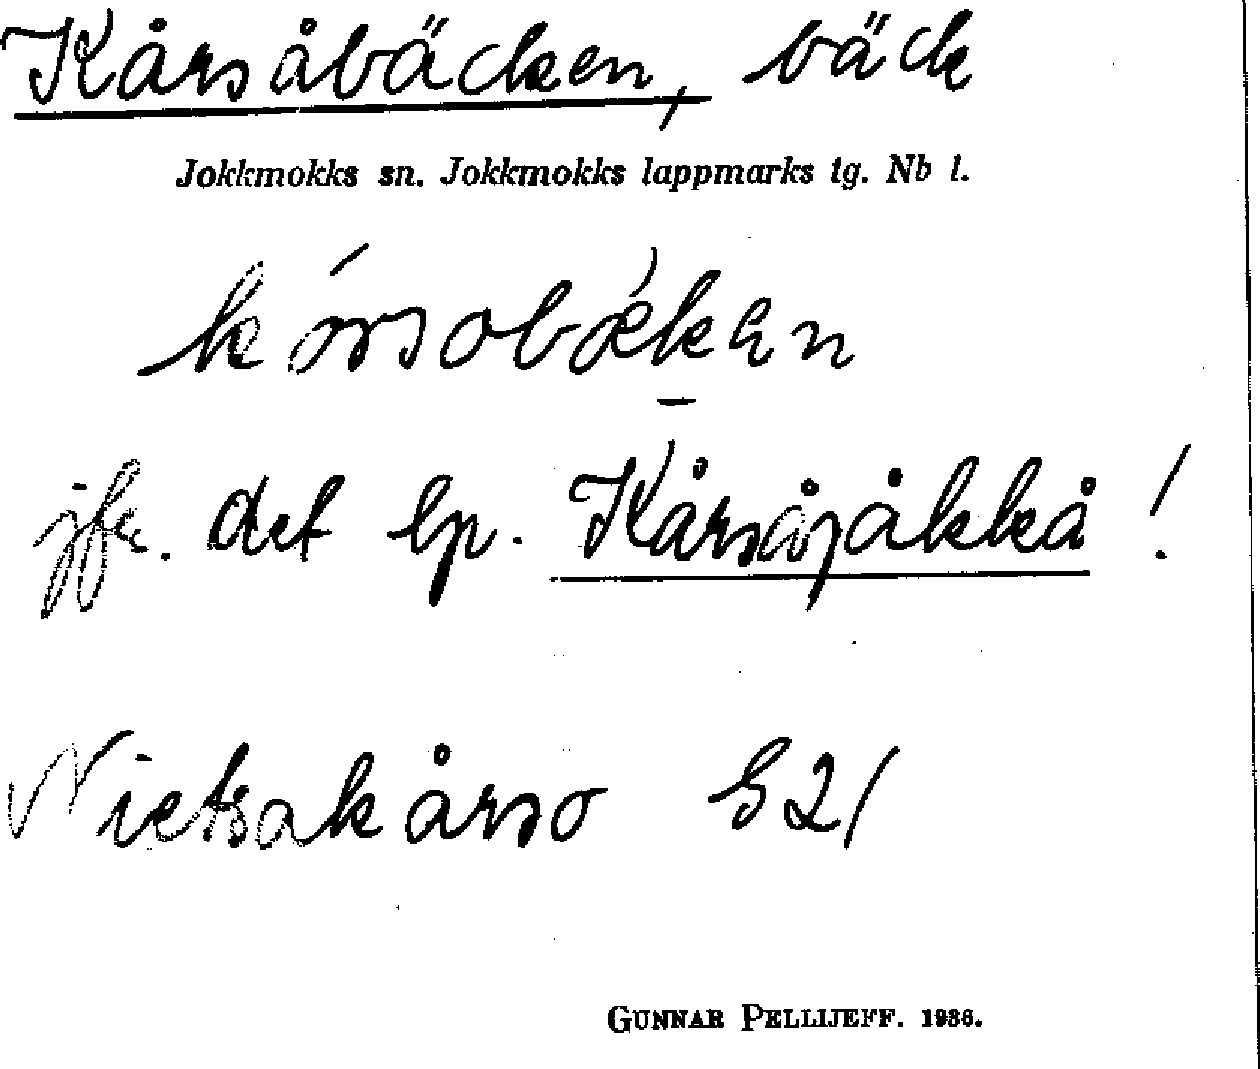 Kårsåbäcken, bäck
Jokkmokks sn. Jokkmokks lappmarks tg. Nb l.
kórsobækən
jfr. det lp. Kårsåjåkkå!
Nietsakårso G21
GUNNAR PELLIJEFF. 1936.